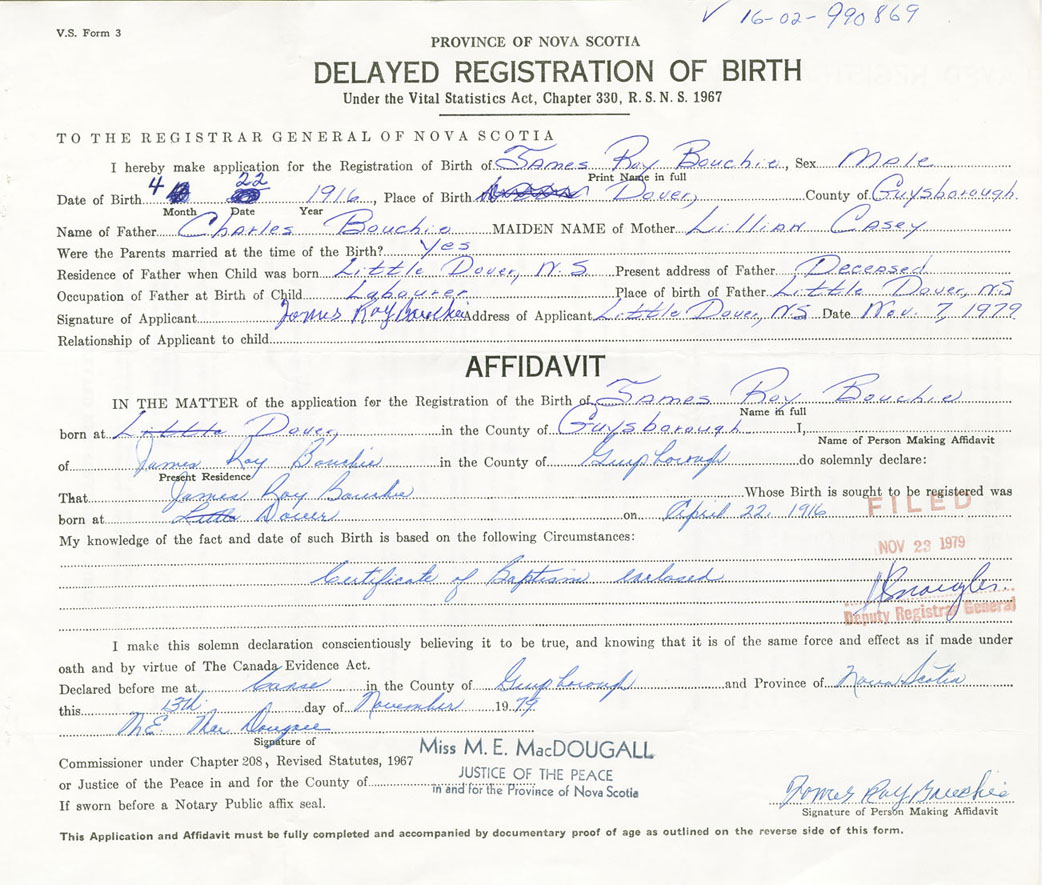 ✓ 16-02-990869
V.S. Form 3
PROVINCE OF NOVA SCOTIA
DELAYED REGISTRATION OF BIRTH
Under the Vital Statistics Act, Chapter 330, R.S.N.S. 1967
TO THE REGISTRAR GENERAL OF NOVA SCOTIA
I hereby make application for the Registration of Birth of James Roy Bouchie, Sex Male
Print Name in full
Date of Birth 4 22 1916, Place of Birth Dover, County of Guysborough
Month Date Year
Name of Father Charles Bouchie MAIDEN NAME of Mother Lillian Casey
Were the Parents married at the time of the Birth? Yes
Residence of Father when Child was born Little Dover, N.S Present address of Father Deceased
Occupation of Father at Birth of Child Labourer Place of birth of Father Little Dover, N.S
Signature of Applicant James Roy Bouchie Address of Applicant Little Dover, N.S Date Nov. 7, 1979
Relationship of Applicant to child
AFFIDAVIT
IN THE MATTER of the application for the Registration of the Birth of James Roy Bouchie
Name in full
born at Little Dover, in the County of Guysborough I,
Name of Person Making Affidavit
of James Roy Bouchie in the County of Guysborough do solemnly declare:
Present Residence
That James Roy Bouchie Whose Birth is sought to be registered was
born at Little Dover on April 22, 1916
FILED
My knowledge of the fact and date of such Birth is based on the following Circumstances:
NOV 23 1979
Certificate of Baptism enclosed
Deputy Registrar General
I make this solemn declaration conscientiously believing it to be true, and knowing that it is of the same force and effect as if made under
oath and by virtue of The Canada Evidence Act.
Declared before me at Canso in the County of Guysborough and Province of Nova Scotia
this 13th day of November 1979
M.E. MacDougall
Signature of
Miss M. E. MacDOUGALL
Commissioner under Chapter 208, Revised Statutes, 1967
JUSTICE OF THE PEACE
or Justice of the Peace in and for the County of
in and for the Province of Nova Scotia
James Roy Bouchie
If sworn before a Notary Public affix seal.
Signature of Person Making Affidavit
This Application and Affidavit must be fully completed and accompanied by documentary proof of age as outlined on the reverse side of this form.